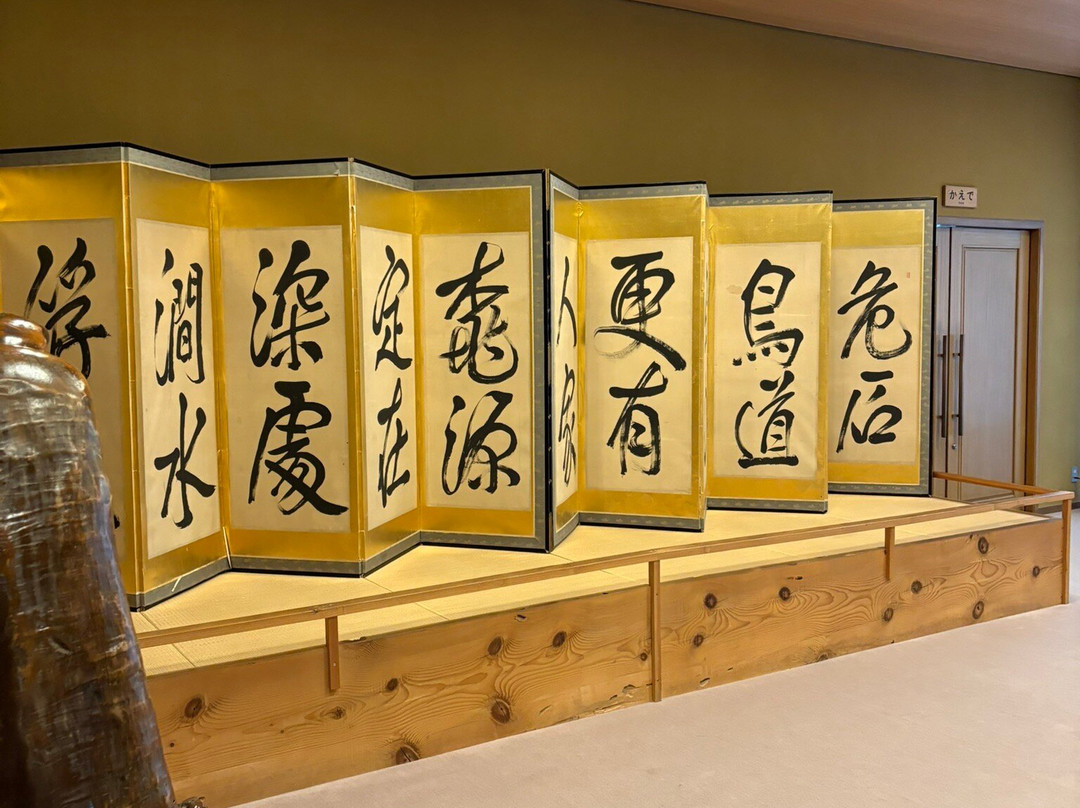 危石
鳥道
更有
人家
桃源
定在
深處
澗水
浮
かえで